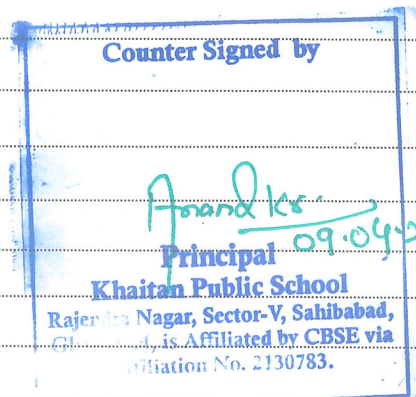 Counter Signed by
Anand Kr.
09.04
Principal
Khaitan Public School
Nagar, Sector-V, Sahibabad,
is Affiliated by CBSE via
No. 2130783.